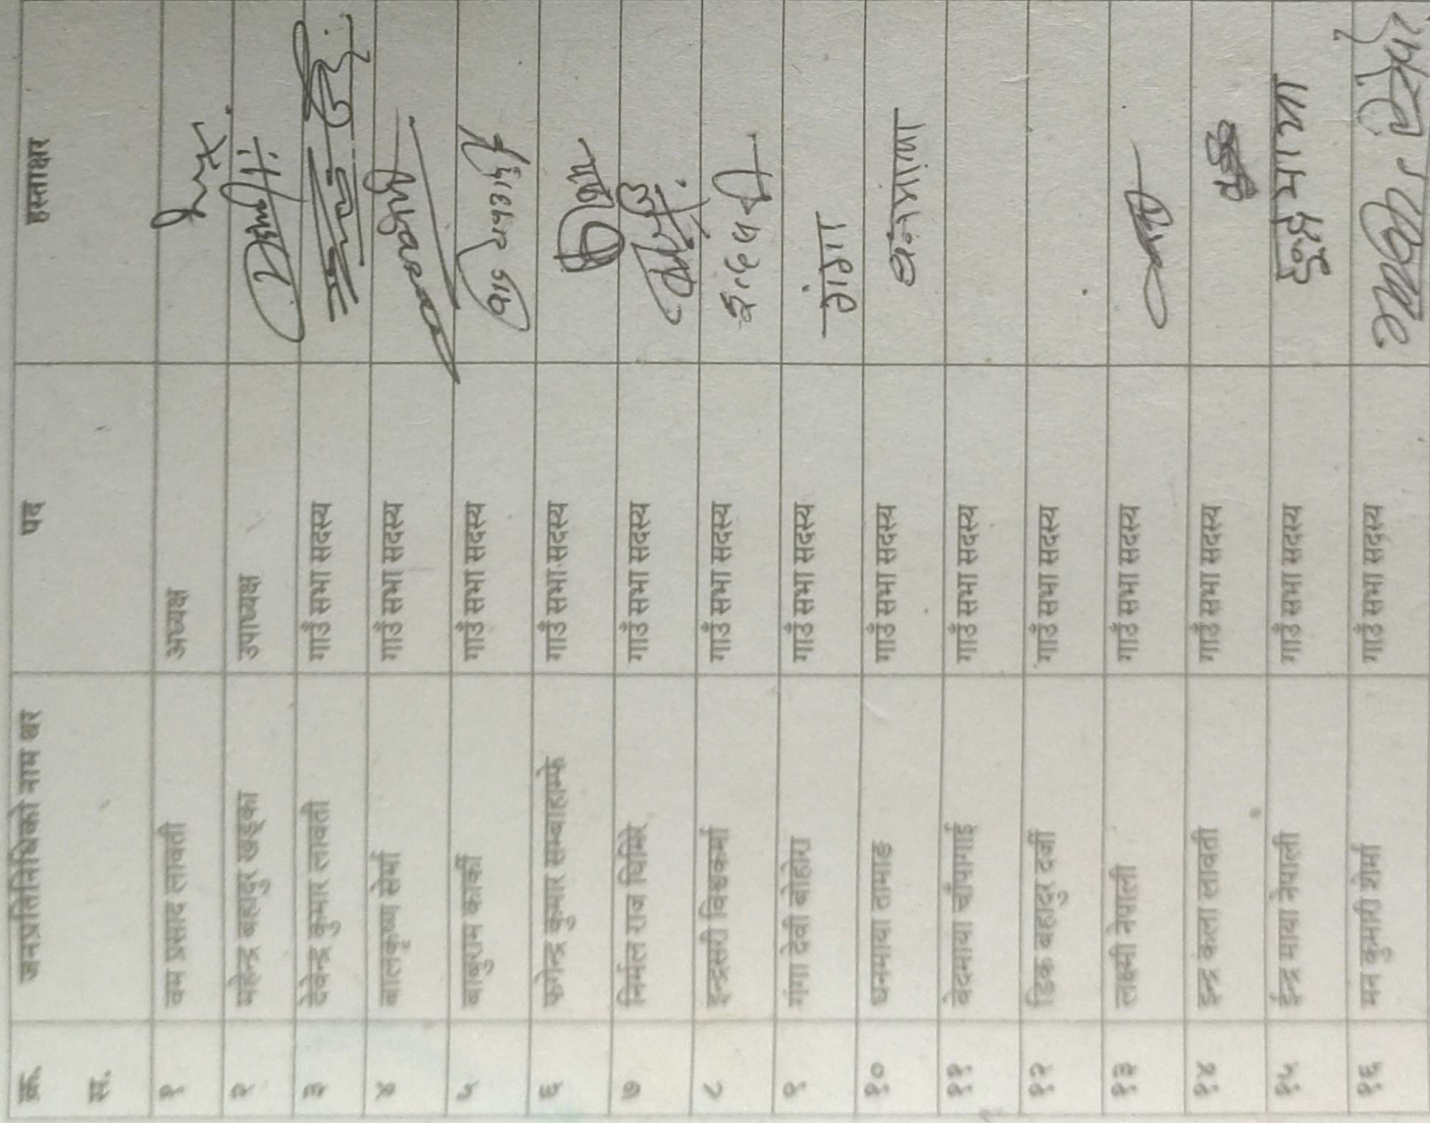 क्र. स. जनप्रतिनिधिको नाम थर पद हस्ताक्षर
१ वम प्रसाद लावती अध्यक्ष
२ महेन्द्र बहादुर खड्का उपाध्यक्ष
३ देवेन्द्र कुमार लावती गाउँ सभा सदस्य
४ बालकृष्ण सेर्मा गाउँ सभा सदस्य
५ बाबुराम कार्की गाउँ सभा सदस्य
६ फगेन्द्र कुमार सम्बाहाम्फे गाउँ सभा सदस्य
७ निर्मल राज घिमिरे गाउँ सभा सदस्य
८ इन्द्रसरी विश्वकर्मा गाउँ सभा सदस्य
९ गंगा देवी बोहोरा गाउँ सभा सदस्य गंगा
१० धनमाया तामाङ गाउँ सभा सदस्य धनमाया
११ बेदमाया चाँपागाई गाउँ सभा सदस्य
१२ डिक बहादुर दर्जी गाउँ सभा सदस्य
१३ लक्ष्मी नेपाली गाउँ सभा सदस्य
१४ इन्द्र कला लावती गाउँ सभा सदस्य
१५ ईन्द्र माया नेपाली गाउँ सभा सदस्य ईन्द्र माया
१६ मन कुमारी शेर्मा गाउँ सभा सदस्य